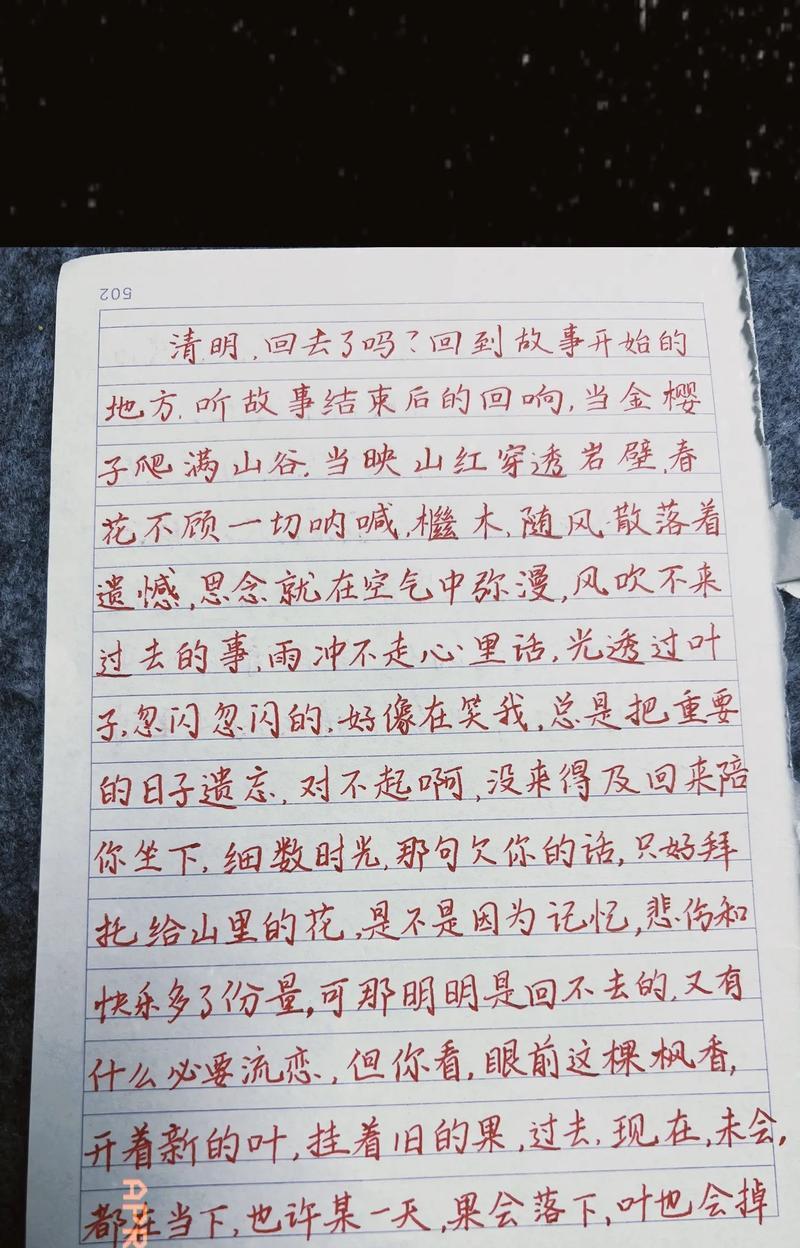 502
清明,回去了吗?回到故事开始的
地方,听故事结束后的回响,当金樱
子爬满山谷,当映山红穿透岩壁,春
花不顾一切呐喊,檵木,随风散落着
遗憾,思念就在空气中弥漫,风吹不来
过去的事,雨冲不走心里话,光透过叶
子,忽闪忽闪的,好像在笑我,总是把重要
的日子遗忘,对不起啊,没来得及回来陪
你坐下,细数时光,那句欠你的话,只好拜
托给山里的花,是不是因为记忆,悲伤和
快乐多了份量,可那明明是回不去的,又有
什么必要流恋,但你看,眼前这棵枫香,
开着新的叶,挂着旧的果,过去,现在,未会,
都在当下,也许某一天,果会落下,叶也会掉
APR